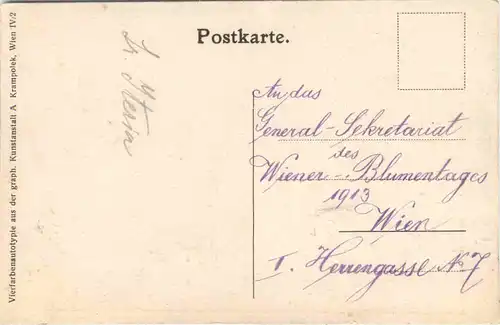 Postkarte.
An das
General-Sekretariat
des
Wiener Blumentages
1913
Wien
I. Herrengasse No 7
Vierfarbenautotypie aus der graph. Kunstanstalt A Krampolek, Wien IV/2